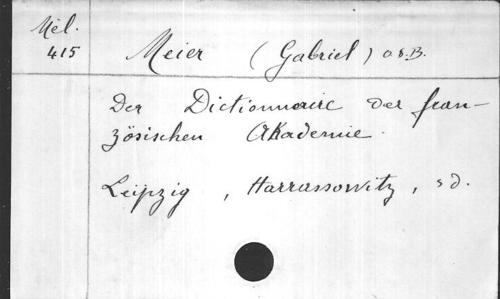 Mél.
415
Meier (Gabriel) o.s.B.
Der Dictionnaire der fran-
zösischen Akademie.
Leipzig, Harrassowitz, s d.